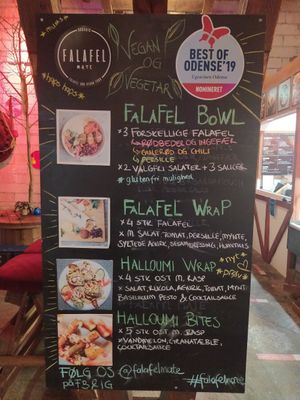 FALAFEL
MATE
VEGAN
OG
VEGETAR
BEST OF
ODENSE'19
Ugeavisen Odense
NOMINERET
FALAFEL BOWL
× 3 FORSKELLIGE FALAFEL
RØDBEDE OG INGEFÆR
GULERØD OG CHILI
PERSILLE
× 2 VALGFRI SALATER + 3 SAUCER
# glutenfri mulighed
FALAFEL WRAP
× 4 STK FALAFEL
× M SALAT, TOMAT, PERSILLE, MYNTE,
SYLTEDE AGURK, SESAMDRESSING, HUMMUS
HALLOUMI WRAP
* NYT
PRØV
× 4 STK OST M. RASP
× SALAT, RUCOLA, AGURK, TOMAT, MYNT
BASILIKUM PESTO & COCKTAILSAUCE
HALLOUMI BITES
× 5 STK OST M. RASP
× VANDMELON, GRANATÆBLE,
COCKTAILSAUCE
FØLG OS @falafelmate
PÅ FB & IG
#falafelmate